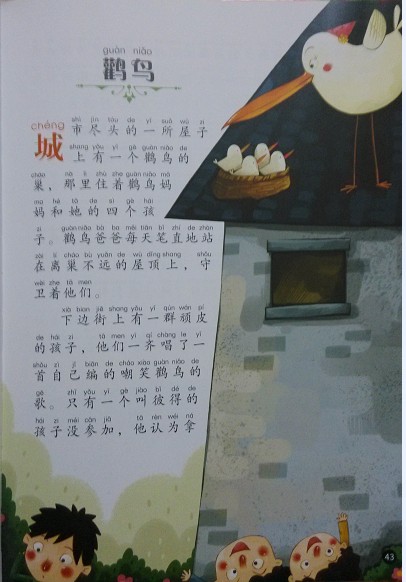 guàn niǎo
鹳鸟
chéng shì jìn tóu de yī suǒ wū zi
城市尽头的一所屋子
shang yǒu yí gè guàn niǎo de
上有一个鹳鸟的
cháo nà li zhù zhe guàn niǎo mā
巢，那里住着鹳鸟妈
ma hé tā de sì gè hái
妈和她的四个孩
zi guàn niǎo bà ba měi tiān bǐ zhí de zhàn
子。鹳鸟爸爸每天笔直地站
zài lí cháo bù yuǎn de wū dǐng shang shǒu
在离巢不远的屋顶上，守
wèi zhe tā men
卫着他们。
xià bian jiē shang yǒu yì qún wán pí
下边街上有一群顽皮
de hái zi tā men yì qí chàng le yì
的孩子，他们一齐唱了一
shǒu zì jǐ biān de cháo xiào guàn niǎo de
首自己编的嘲笑鹳鸟的
gē zhǐ yǒu yí gè jiào bǐ dé de
歌。只有一个叫彼得的
hái zi méi cān jiā tā rèn wéi ná
孩子没参加，他认为拿
43